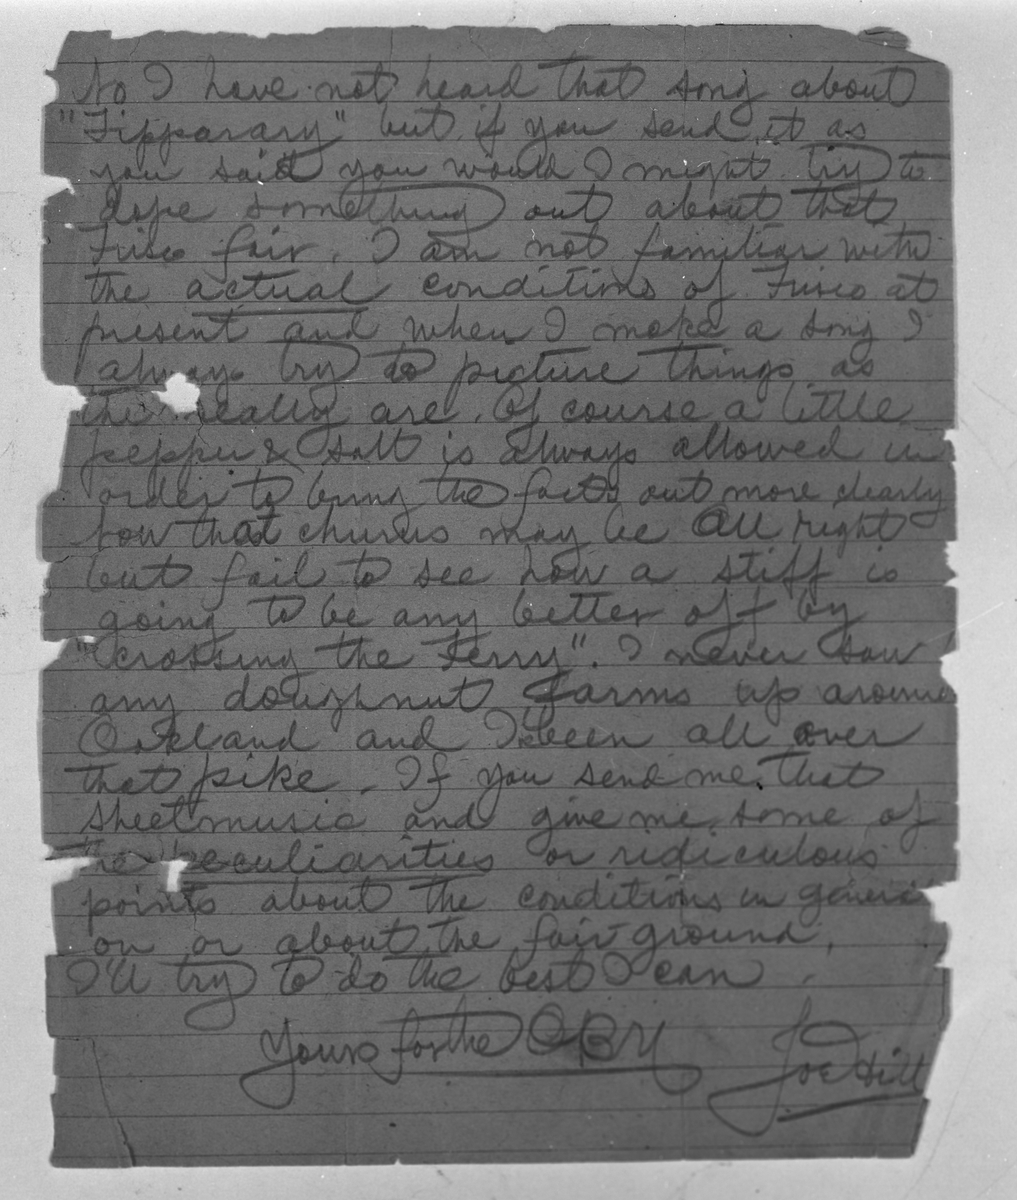 No I have not heard that song about
"Tipparary" but if you send it as
you said you would I might try to
dope something out about that
Frisco fair. I am not familiar with
the actual conditions of Frisco at
present and when I make a song I
always try to picture things as
the really are. Of course a little
pepper & salt is always allowed in
order to bring the facts out more clearly
Now that chorus may be all right
but fail to see how a stiff is
going to be any better off by
"crossing the Ferry". I never saw
any doughnut farms up around
Oakland and I been all over
that pike. If you send me that
sheetmusic and give me some of
the peculiarities or ridiculous
points about the conditions in general
on or about the fair ground,
I'll try to do the best I can.
Yours for the OBU Joe Hill